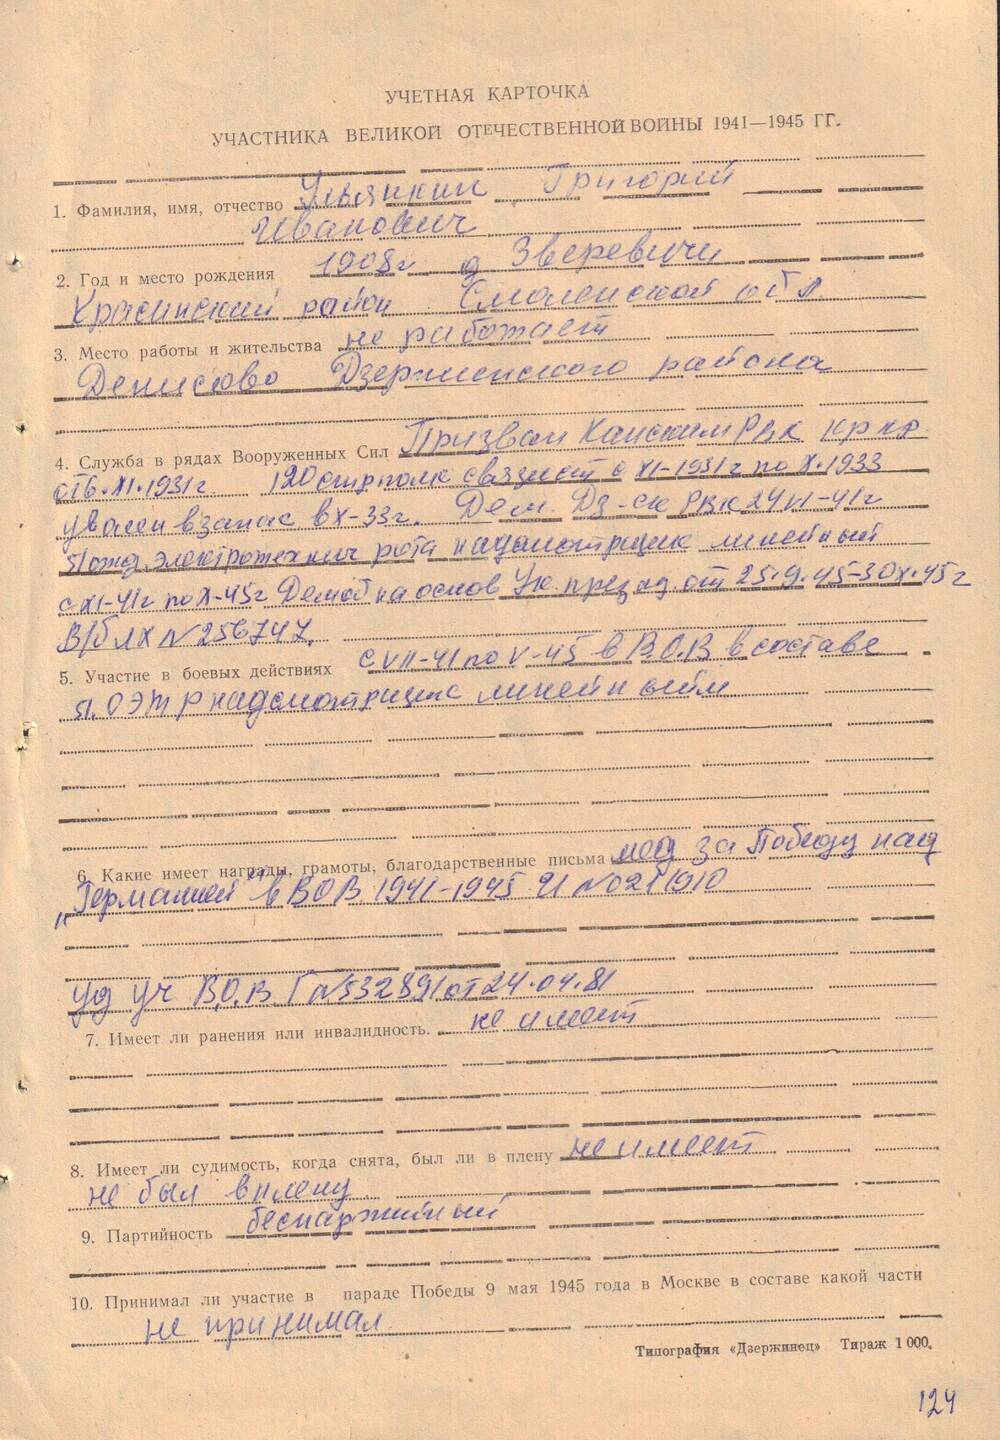 УЧЕТНАЯ КАРТОЧКА
УЧАСТНИКА ВЕЛИКОЙ ОТЕЧЕСТВЕННОЙ ВОЙНЫ 1941—1945 ГГ.
1. Фамилия, имя, отчество Ульянкин Григорий
Иванович
2. Год и место рождения 1908г д Зверевичи
Краснинский район Смоленской обл.
3. Место работы и жительства не работает
Денисово Дзержинского района
4. Служба в рядах Вооруженных Сил Призван Канским РВК кркр
от 6.XI.1931г. 120 стр полк связист с XI-1931г по X.1933
уволен в запас в X-33г. Дз-ск РВК 24
электротехнич рота надсмотрщик линейный
с XI-41г по X-45г Демоб на основ Ук. през от 25.9.45-30X.45г
В/б ЛХ N 256747.
5. Участие в боевых действиях с VII-41 по V-45 в В.О.В в составе
надсмотрщик линейный
6. Какие имеет награды, грамоты, благодарственные письма мед за Победу над
"Германией" в В О В 1941-1945 N 0211910
уд уч В.О.В Г N 532891 от 24.04.81
7. Имеет ли ранения или инвалидность. не имеет
8. Имеет ли судимость, когда снята, был ли в плену не имеет
не был в плену
9. Партийность беспартийный
10. Принимал ли участие в параде Победы 9 мая 1945 года в Москве в составе какой части
не принимал
Типография «Дзержинец» Тираж 1 000.
124